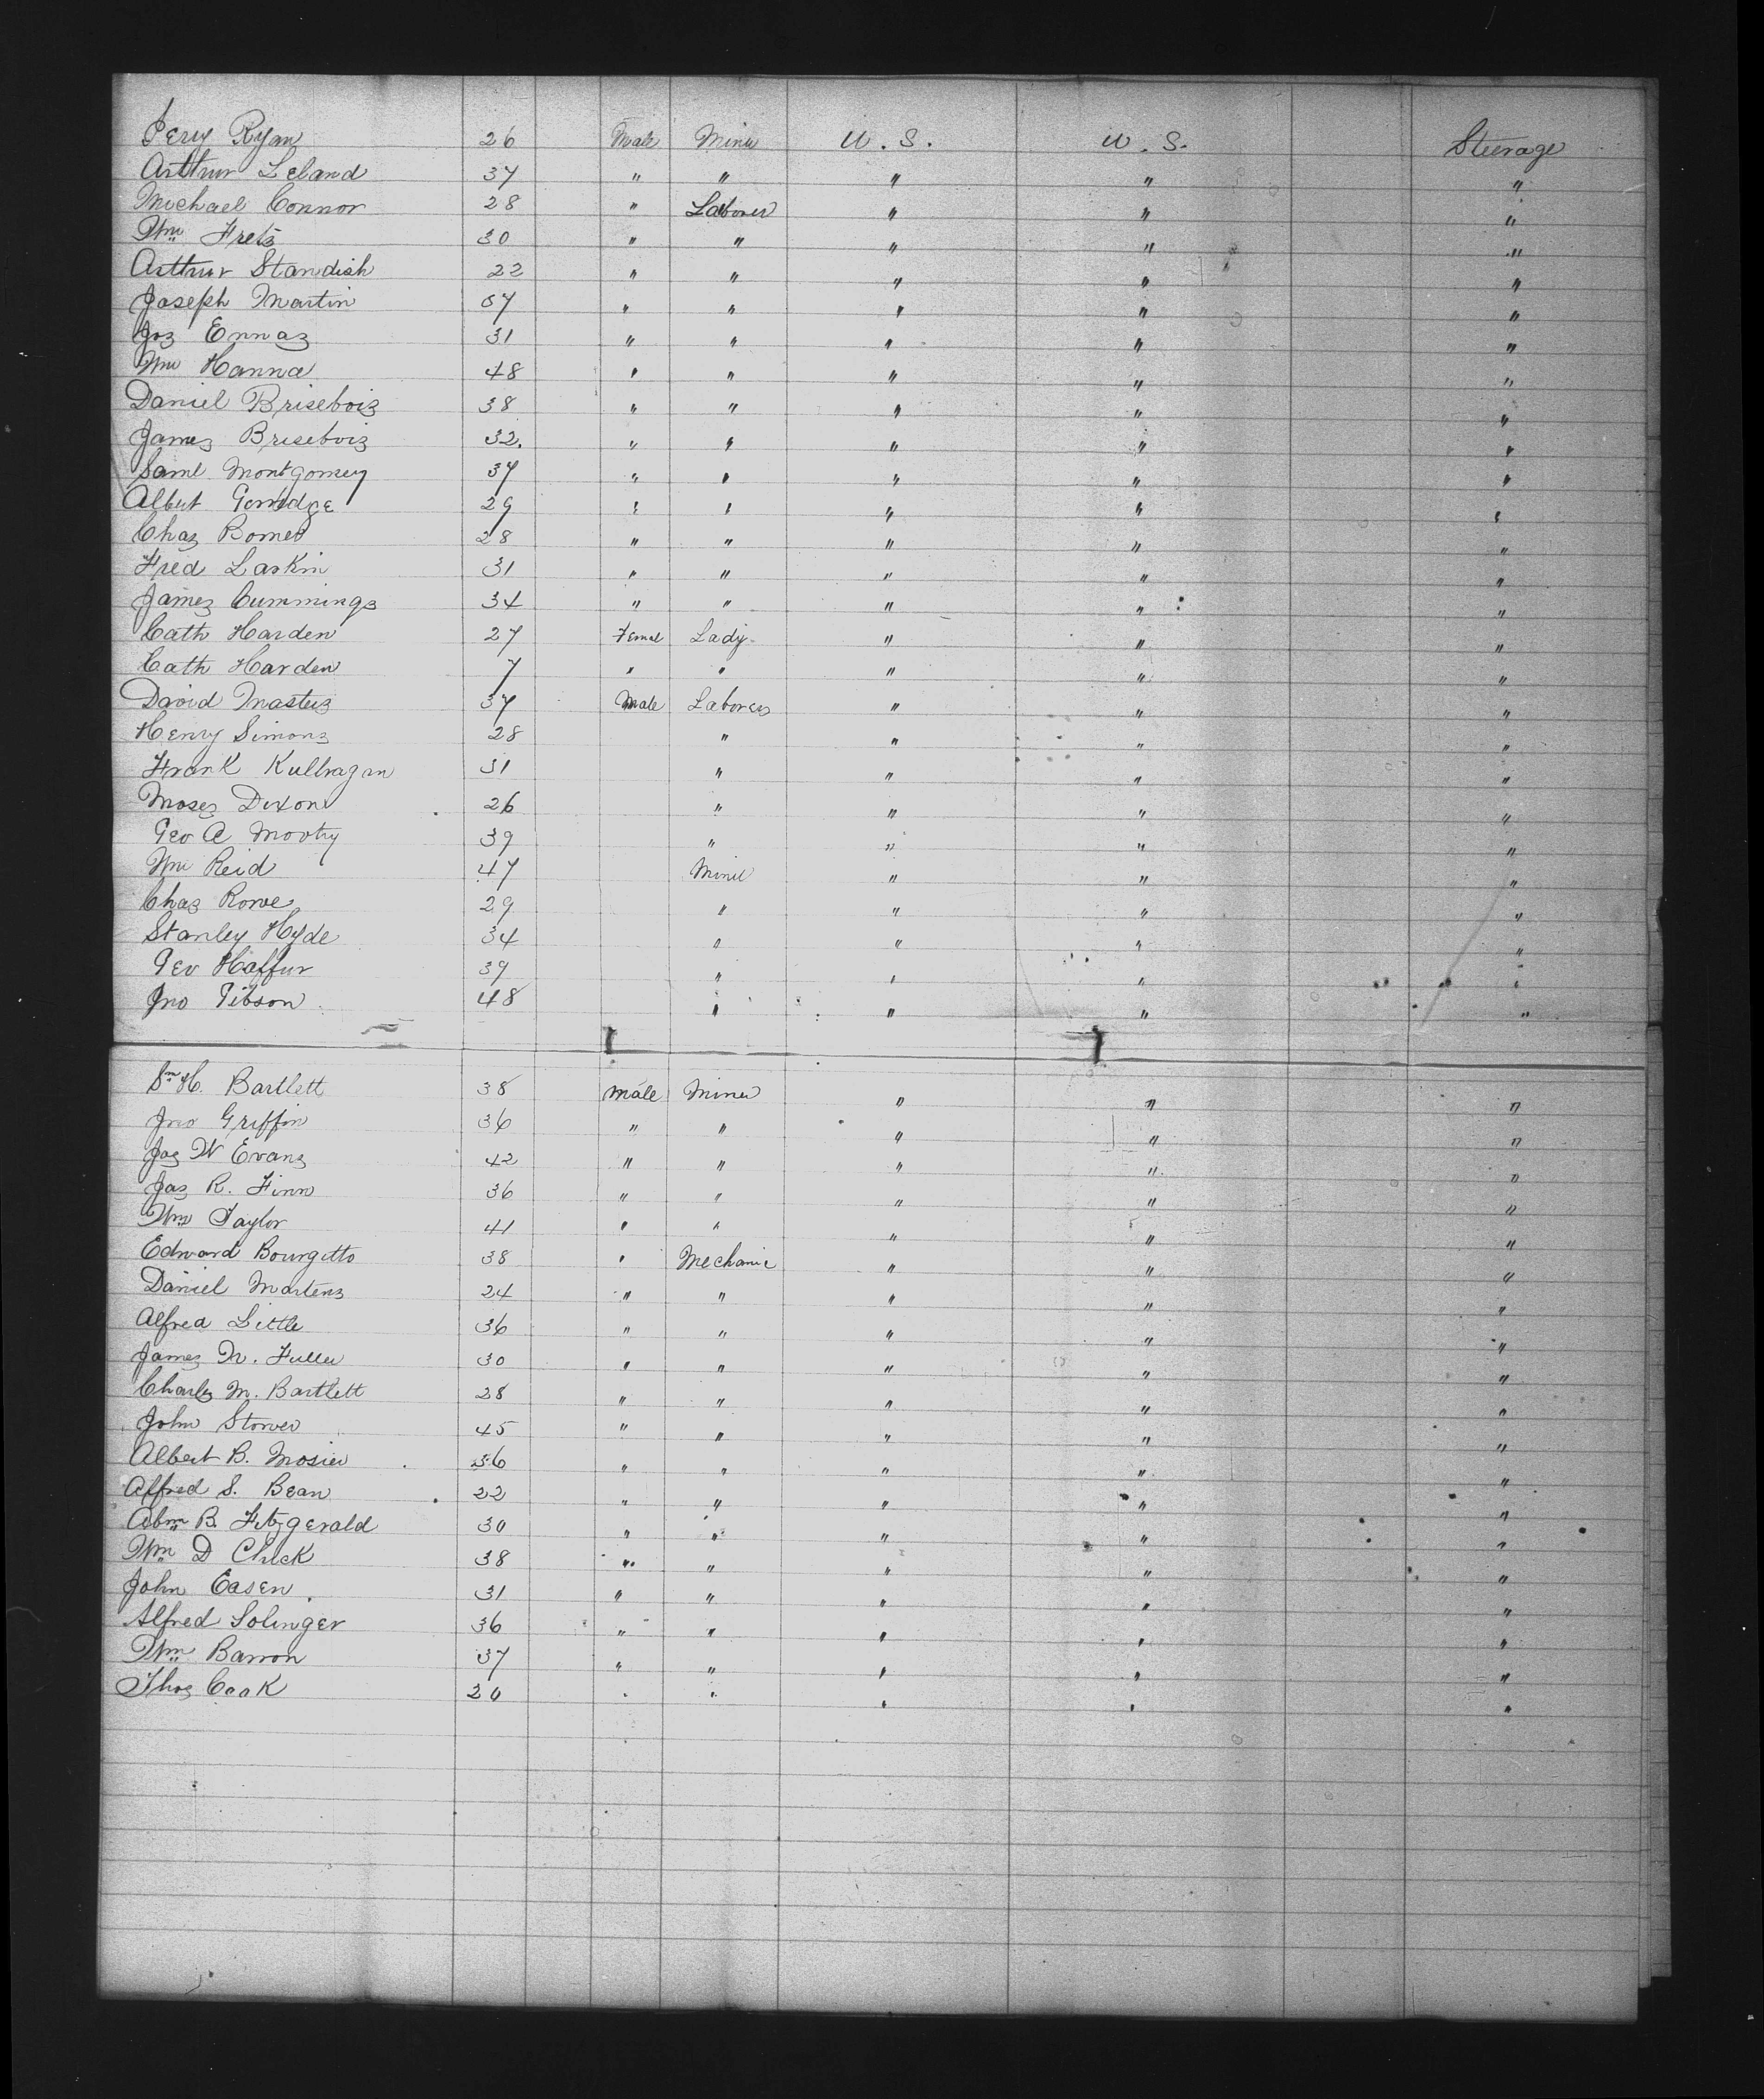 Pery Ryan 26 Male Miner U. S. U. S. Steerage
Arthur Leland 37 " " " " "
Michael Connor 28 " Laborer " " "
Wm Fretz 30 " " " " "
Arthur Standish 22 " " " " "
Joseph Martin 37 " " " " "
Jos Ennas 31 " " " " "
Wm Hanna 48 " " " " "
Daniel Brisebois 38 " " " " "
James Brisebois 32. " " " " "
Saml Montgomery 37 " " " " "
Albert 29 " " " " "
Chas Bomer 28 " " " " "
Fred Laskin 31 " " " " "
James Cummings 34 " " " " "
Cath Harden 27 Femal Lady " " "
Cath Harden 7 " " " " "
David Masters 37 Male Laborers " " "
Henry Simons 28 " " " "
Frank Kullragan 31 " " " "
Moses Dixon 26 " " " "
Geo A Mootry 39 " " " "
Wm Reid 47 Miner " " "
Chas Rowe 29 " " " "
Stanley Hyde 34 " " " "
Geo Haffur 39 " " " "
Jno Gibson 48 " " " "
Sm H. Bartlett 38 Male Miner " " "
Jno Griffin 36 " " " " "
Jas W Evans 42 " " " " "
Jas R. Finn 36 " " " " "
Wm Taylor 41 " " " " "
Edward Bourgitto 38 " Mechanic " " "
Daniel Martens 24 " " " " "
Alfred Little 36 " " " " "
James W. Fuller 30 " " " " "
Charles M. Bartlett 28 " " " " "
John Stower 45 " " " " "
Albert B. Mosier 36 " " " " "
Alfred S. Bean 22 " " " " "
Abm B. Fitzgerald 30 " " " " "
Wm D Chick 38 " " " " "
John Easen 31 " " " " "
Alfred Solinger 36 " " " " "
Wm Barron 37 " " " " "
Thos Cook 20 " " " " "